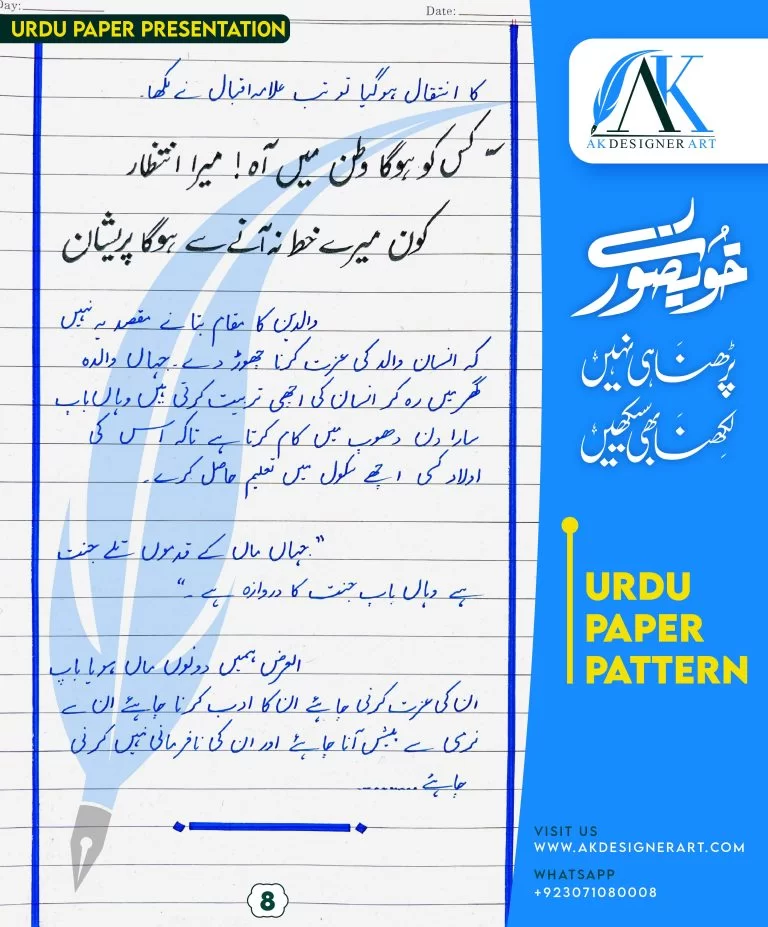 Day:
Date:
URDU PAPER PRESENTATION
کا انتقال ہوگیا تو تب علامہ اقبال نے لکھا۔
کس کو ہوگا وطن میں آہ ! میرا انتظار
کون میرے خط نہ آنے سے ہوگا پریشان
والدین کا مقام بتانے مقصد یہ نہیں
کہ انسان والد کی عزت کرنا چھوڑ دے۔ جہاں والدہ
گھر میں رہ کر انسان کی اچھی تربیت کرتی ہیں وہاں باپ
سارا دن دھوپ میں کام کرتا ہے تاکہ اس کی
اولاد کسی اچھے سکول میں تعلیم حاصل کرے۔
”جہاں ماں کے قدموں تلے جنت
ہے وہاں باپ جنت کا دروازہ ہے ۔“
الغرض ہمیں دونوں ماں ہو یا باپ
ان کی عزت کرنی چاہئے ان کا ادب کرنا چاہئے ان سے
نرمی سے پیش آنا چاہئے اور ان کی نافرمانی نہیں کرنی
چاہئے.........
8
AK
AK DESIGNER ART
خوبصورتی
پڑھنا ہی نہیں
لکھنا بھی سیکھیں
URDU
PAPER
PATTERN
VISIT US
WWW.AKDESIGNERART.COM
WHATSAPP
+923071080008